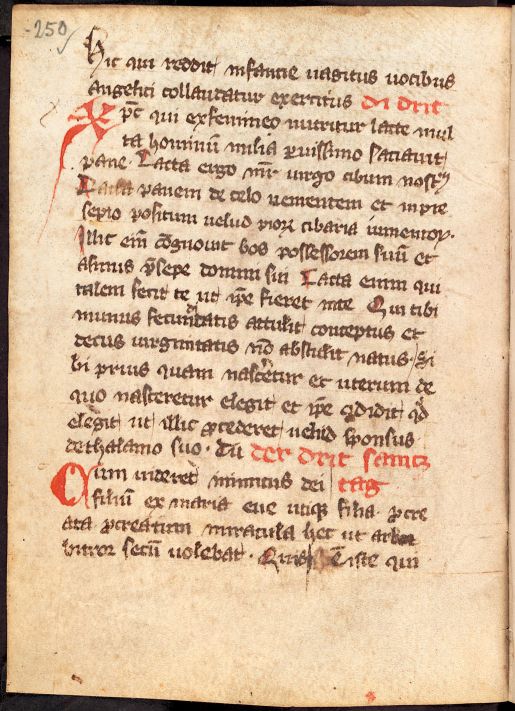 250
Hic qui reddit infancie uagitus uocibus
angelici collaudatur exercitus di drit
xpc qui ex femineo nutritur lacte mul
ta hominum milia puissimo saciauit
pane. Lacta ergo mr virgo cibum nostrum
Lacta panem de celo uenientem et in pre
sepio positum uelud pior cibaria iumentor.
Illic eim cognouit bos possessorem suum et
asinus psepe domini sui Lacta enim qui
talem fecit te ut ipe fieret in te Qui tibi
munus fecunditatis attulit conceptus et
decus uirginitatis no abstulit natus. Si
bi prius quam nasceretur et uterum de
quo nasceretur elegit et ipe condidit qd
elegit ut illic pcederet uelud sponsus
de thalamo suo. Tu der drit samtz
Cum uideret inimicus dei tag
filiu ex maria eue utiqz filia. pcre
ata pcreatum miracula hec ut arbi
bitror secum uolebat. Quis e iste qui